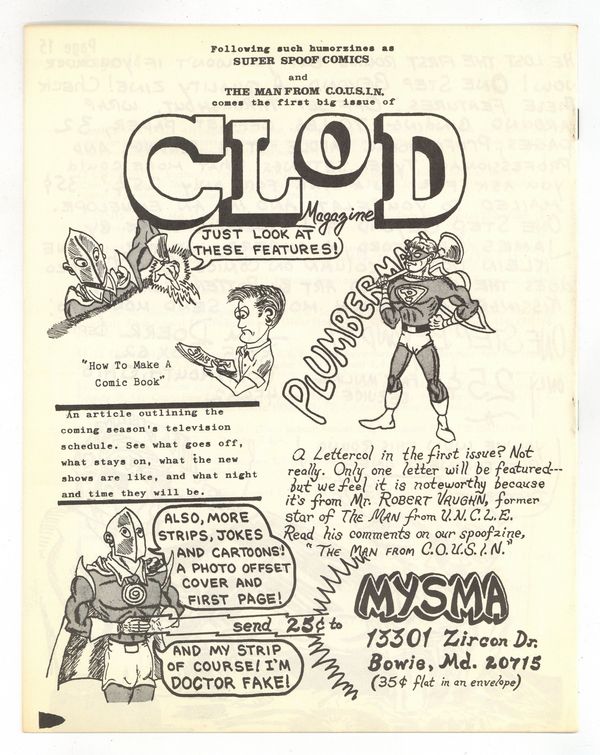 Following such humorzines as
SUPER SPOOF COMICS
and
THE MAN FROM C.O.U.S.I.N.
comes the first big issue of
CLOD
Magazine
JUST LOOK AT
THESE FEATURES!
"How To Make A
Comic Book"
PLUMBERMAN
An article outlining the
coming season's television
schedule. See what goes off,
what stays on, what the new
shows are like, and what night
and time they will be.
A Lettercol in the first issue? Not
really. Only one letter will be featured---
but we feel it is noteworthy because
it's from Mr. ROBERT VAUGHN, former
star of THE MAN from U.N.C.L.E.
Read his comments on our spoofzine,
"THE MAN FROM C.O.U.S.I.N."
ALSO, MORE
STRIPS, JOKES
AND CARTOONS!
A PHOTO OFFSET
COVER AND
FIRST PAGE!
send 25¢ to
AND MY STRIP
OF COURSE! I'M
DOCTOR FAKE!
MYSMA
13301 Zircon Dr.
Bowie, Md. 20715
(35¢ flat in an envelope)